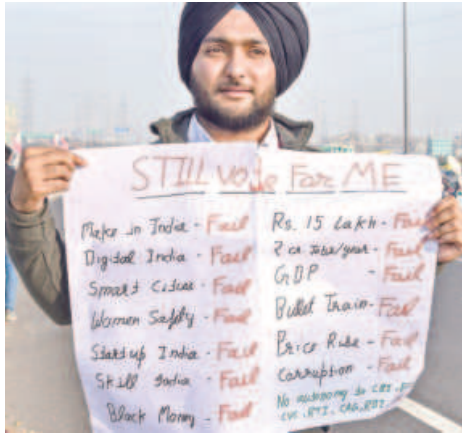 STILL vote For ME
Make in India - Fail
Digital India - Fail
Smart Cities - Fail
Women Safety - Fail
Startup India - Fail
Skill India - Fail
Black Money - Fail
Rs. 15 Lakh - Fail
2 cr Jobs/year - Fail
GDP - Fail
Bullet Train - Fail
Price Rise - Fail
Corruption - Fail
No autonomy to CBI,
CVC, RTI, CAG, RBI